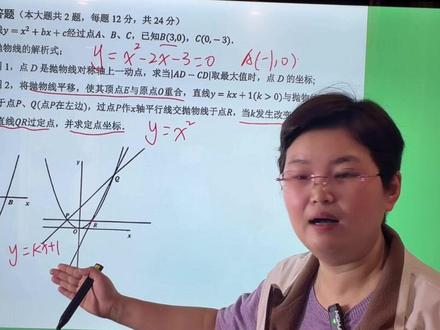 答题（本大题共2题，每题12分，共24分）
线y=x²+bx+c经过点A、B、C，已知B(3,0)，C(0,-3).
抛物线的解析式；
y=x²-2x-3=0 A(-1,0)
1，点D是抛物线对称轴上一动点，求当|AD-CD|取最大时，点D的坐标；
2，将抛物线平移，使其顶点E与原点O重合，直线y=kx+1(k>0)与抛物
于点P、Q(点P在左边)，过点P作x轴平行线交抛物线于点R，当k发生改变
直线QR过定点，并求定点坐标.
y=x²
y
Q
P
R
O
x
B
x
y=kx+1